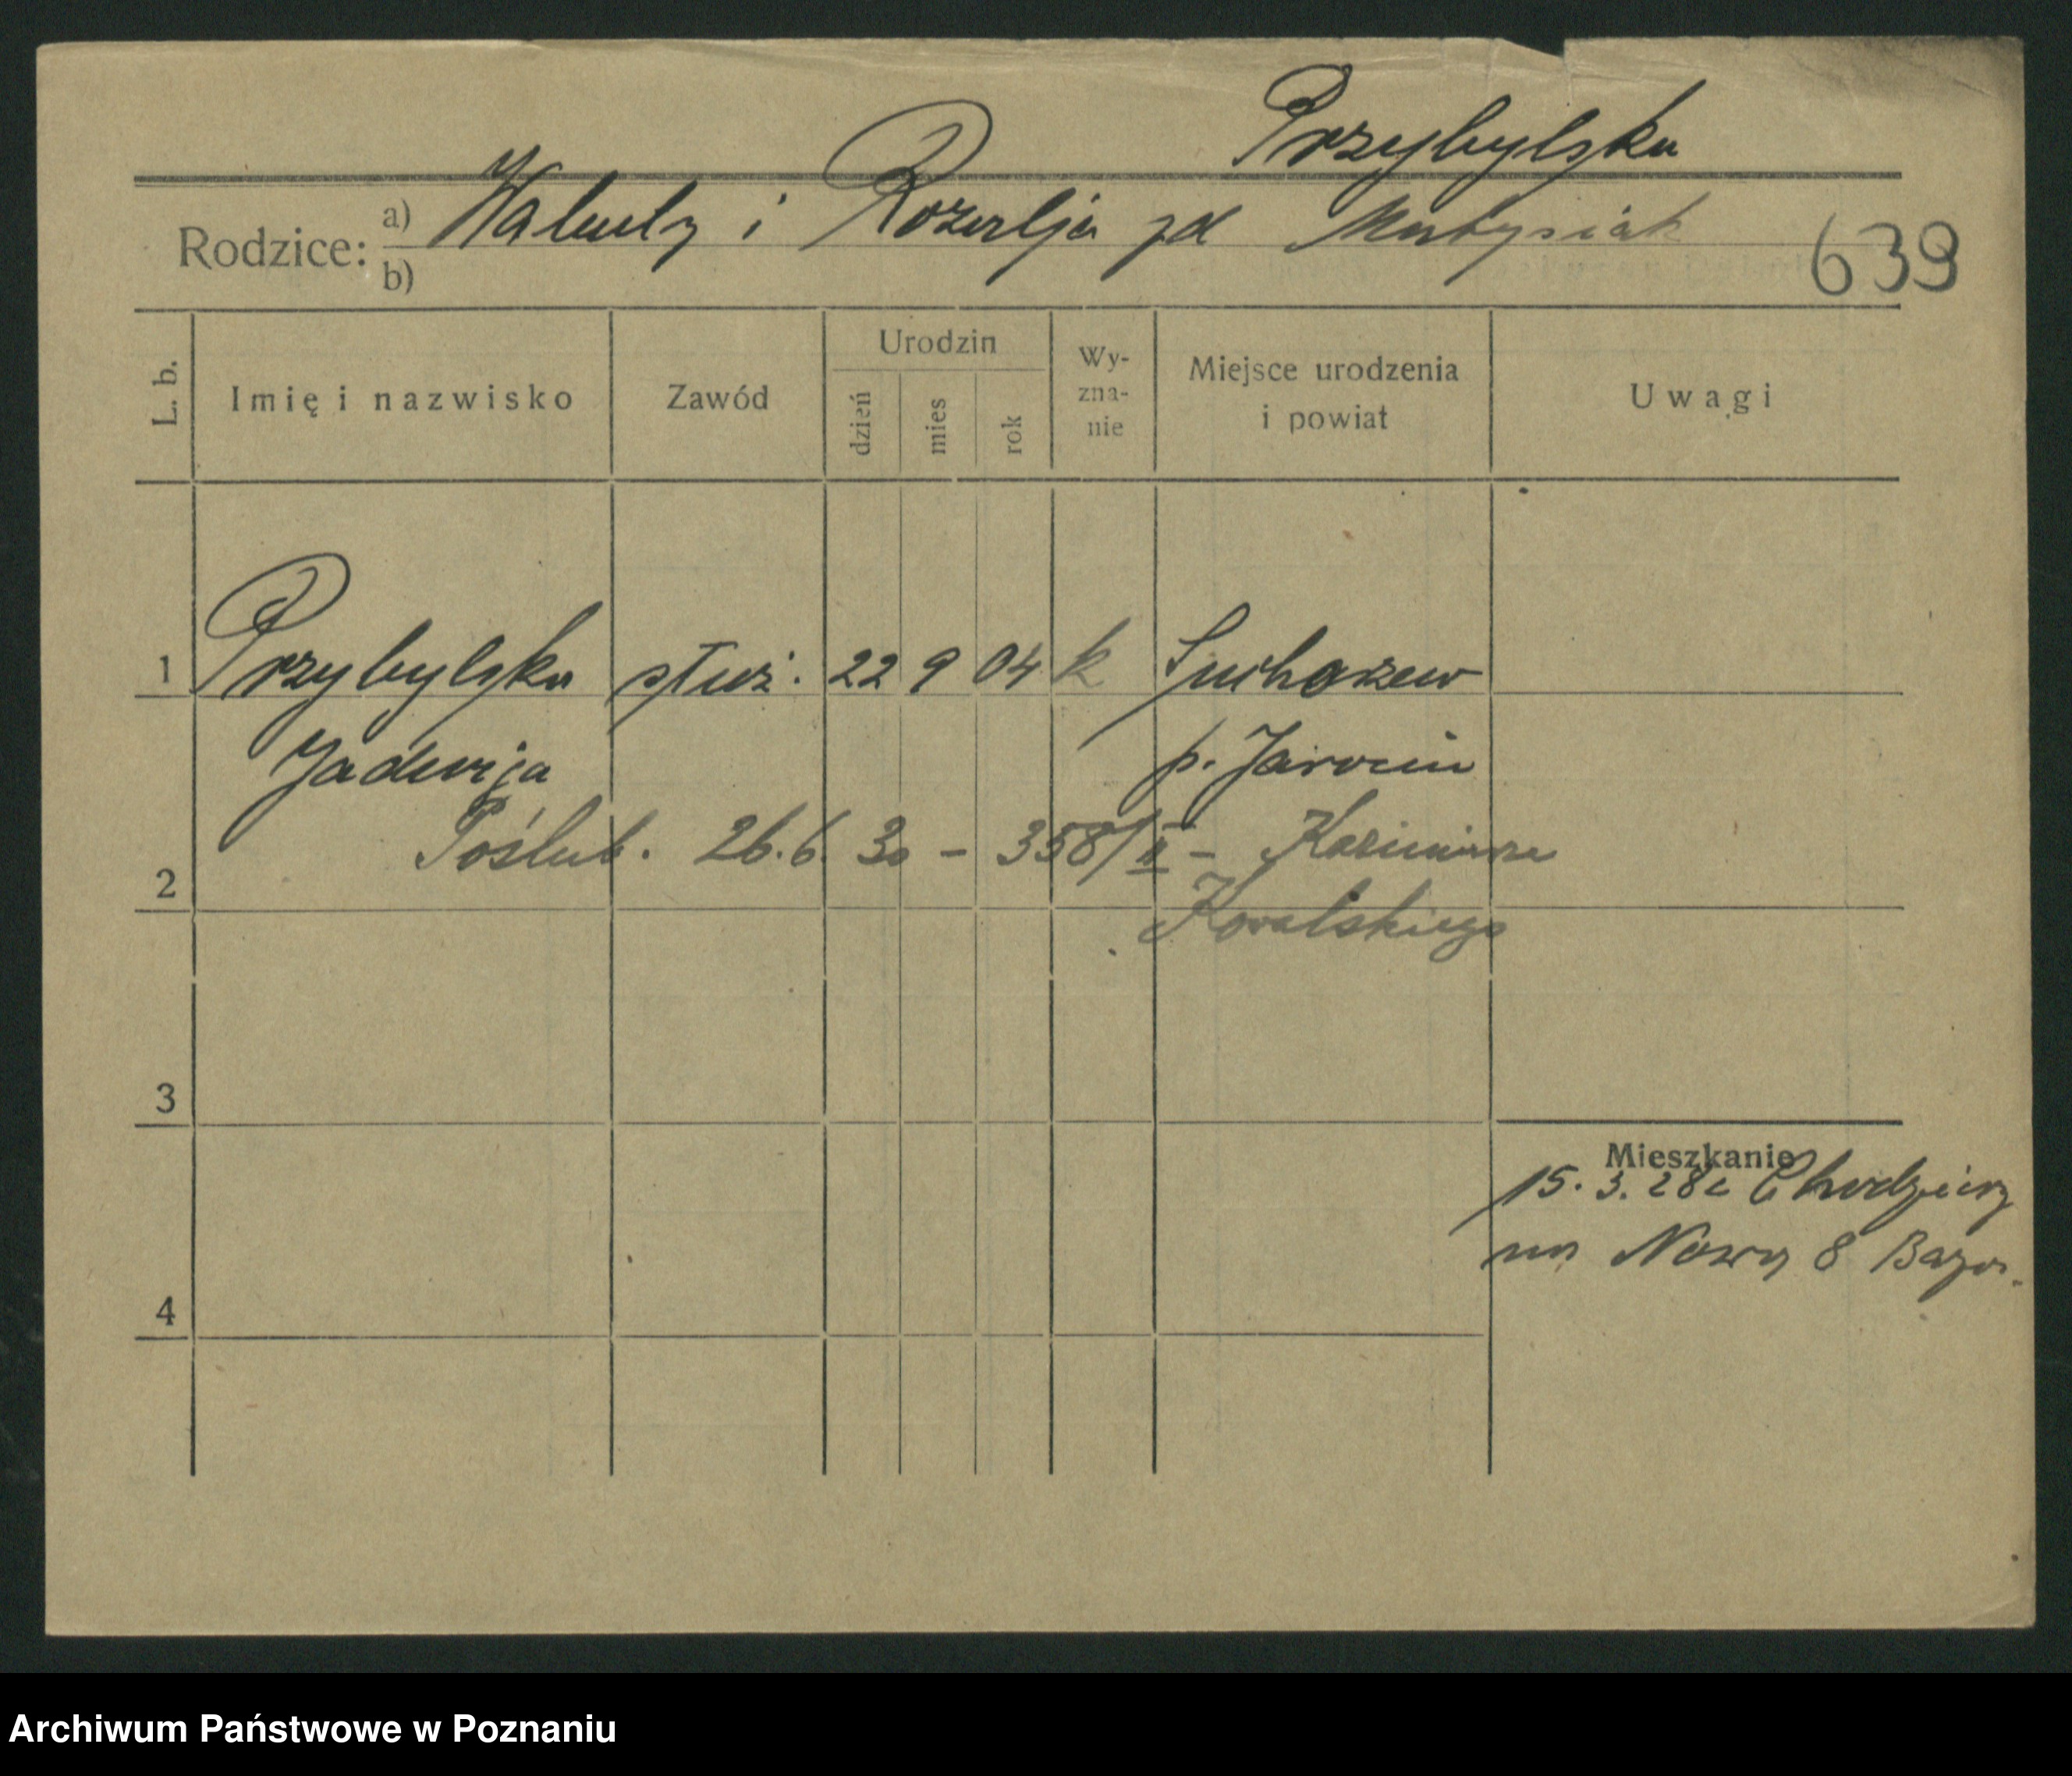 Przybylska
Rodzice: a) Walenty i Rozalja zd Matysiak
b)
639
L. b.
Imię i nazwisko
Zawód
Urodzin
dzień
mies
rok
Wy-
zna-
nie
Miejsce urodzenia
i powiat
Uwagi
1 Przybylska służ. 22 9 04 k Suchorzew
Jadwiga p. Jarocin
2 Poślub. 26.6. 30 - 358/II - Kazimierza
Kowalskiego
3
Mieszkanie
15. 3. 28 z Chodzieży
na Nowa 8 Bazar.
4
Archiwum Państwowe w Poznaniu